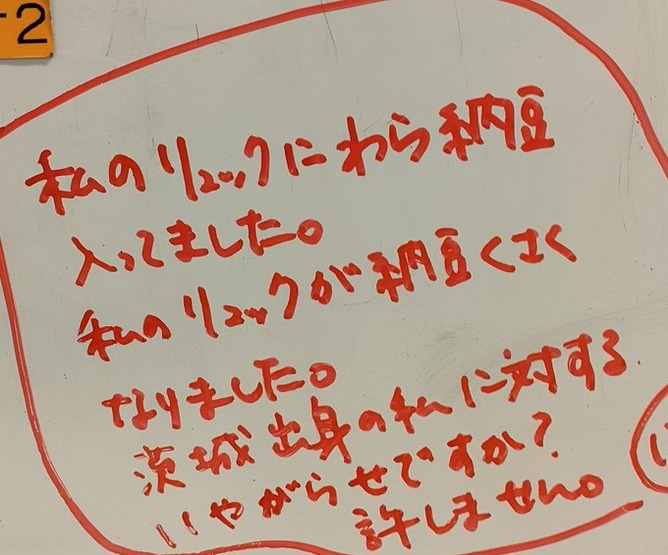 2
私のリュックにわら納豆
入ってました。
私のリュックが納豆くさく
なりました。
茨城出身の私に対する
いやがらせですか?
許しません。